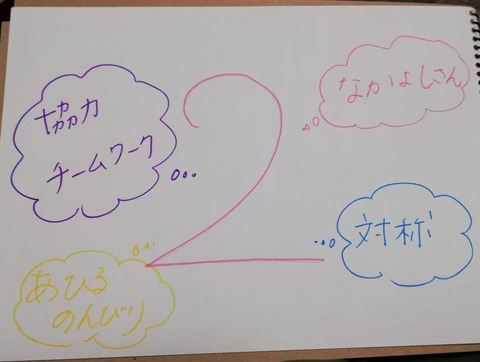 協力
チームワーク
2
なかよしさん
対称
あひる
のんびり